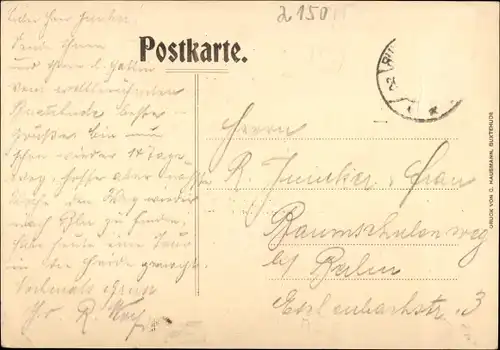 2150
Postkarte.
Lieber Herr Junker!
Sende Ihnen
und Ihrer l. Gattin
vom weltberühmten
Buxtehude beste
Grüße. bin nun
schon wieder 14 Tage
weg, hoffe aber nächste
Woche den Weg wieder
nach Bln zu finden,
habe heute eine Tour
in die Heide gemacht.
Vielmals Grüßt
Ihr R.
Herrn
R. Junker, Frau
Baumschulenweg
bei Berlin
str. 3
DRUCK VON C. HAUSMANN, BUXTEHUDE